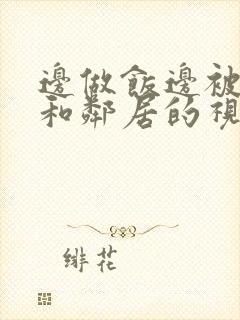 邊做飯邊被
和鄰居的視
緋花